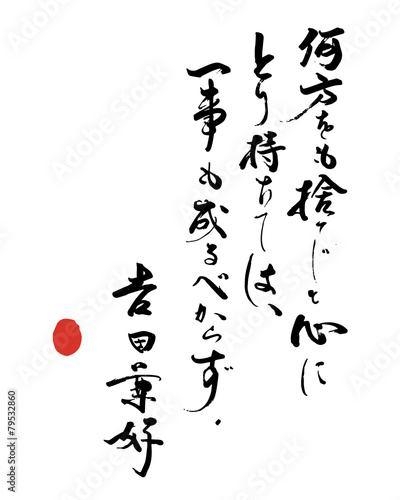 何方をも捨てじと心に
とり持ちては、
一事も成るべからず．
吉田兼好
Adobe Stock
79532860